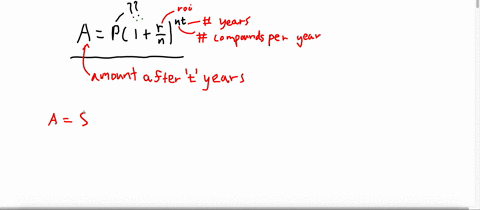 ?? roi
A = P(1 + r/n)^nt # years
# compounds per year
amount after 't' years
A = S